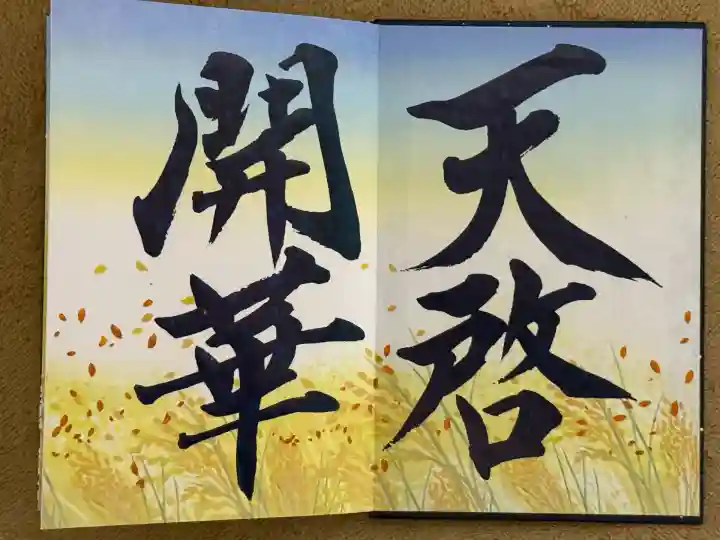 天啓
開華